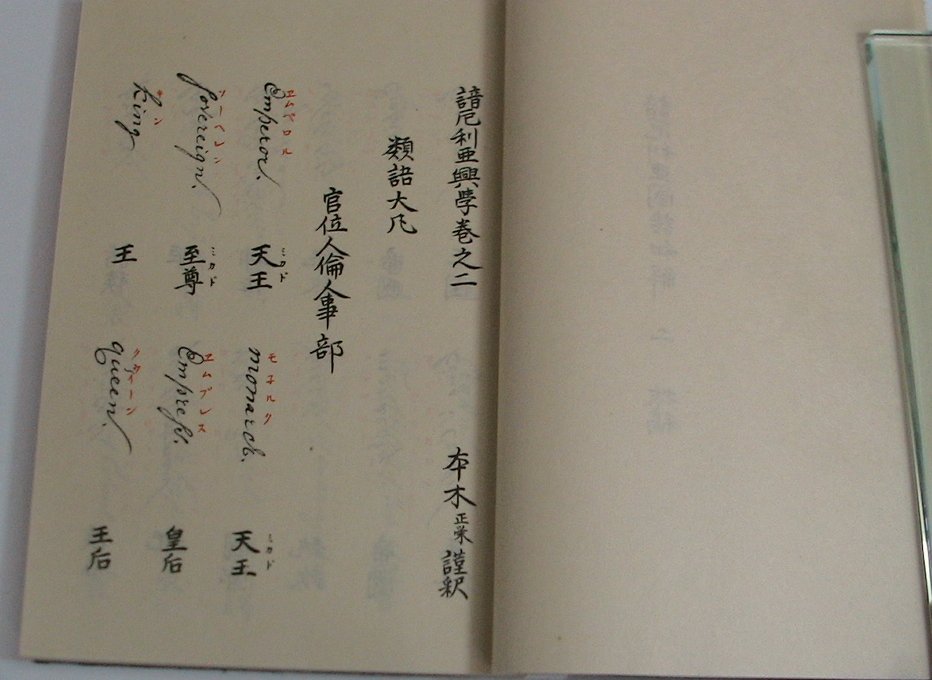 諳厄利亜興学巻之二
本木正栄謹釈
類語大凡
官位人倫人事部
エムペロル
Emperor.
ミカド
天王
モナルク
monarch.
ミカド
天王
ソーベレン
Sovereign.
ミカド
至尊
エムプレス
Empreſs.
皇后
キン
King
王
クウィーン
queen.
王后